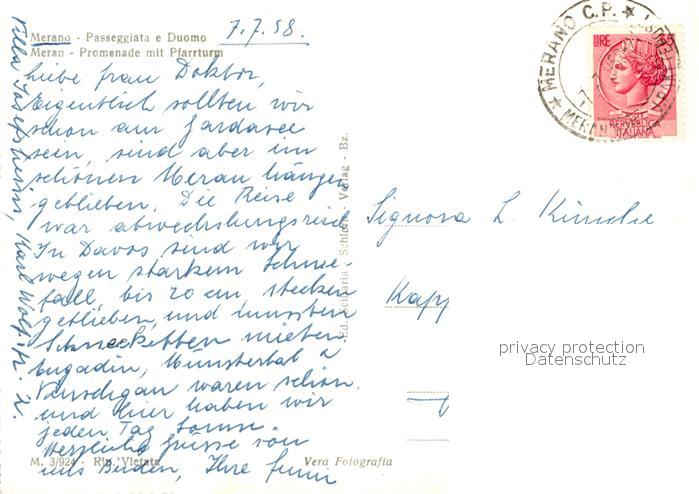 Merano - Passeggiata e Duomo
Meran - Promenade mit Pfarrturm
7.7.58.
Liebe Frau Doktor,
Eigentlich sollten wir
schon am Gardasee
sein, sind aber im
schönen Meran hängen
geblieben. Die Reise
war abwechslungsreich
In Davos sind wir
wegen starkem Schnee-
fall, bis 20 cm, stecken
geblieben, und mussten
Schneeketten mieten
Engadin, Münstertal u
Vinschgau waren schön.
und hier haben wir
jeden Tag Sonne.
Herzliche Grüsse von
uns Beiden, Ihre
Villa Josefsheim, Karl Wolf
Ed. Schlern - Verlag - Bz.
M. 3/924 - Rip. Vietata
Vera Fotografia
MERANO C.P.
MERAN
LIRE
REPVBBLICA
ITALIANA
Signora L.
Kapp
privacy protection
Datenschutz